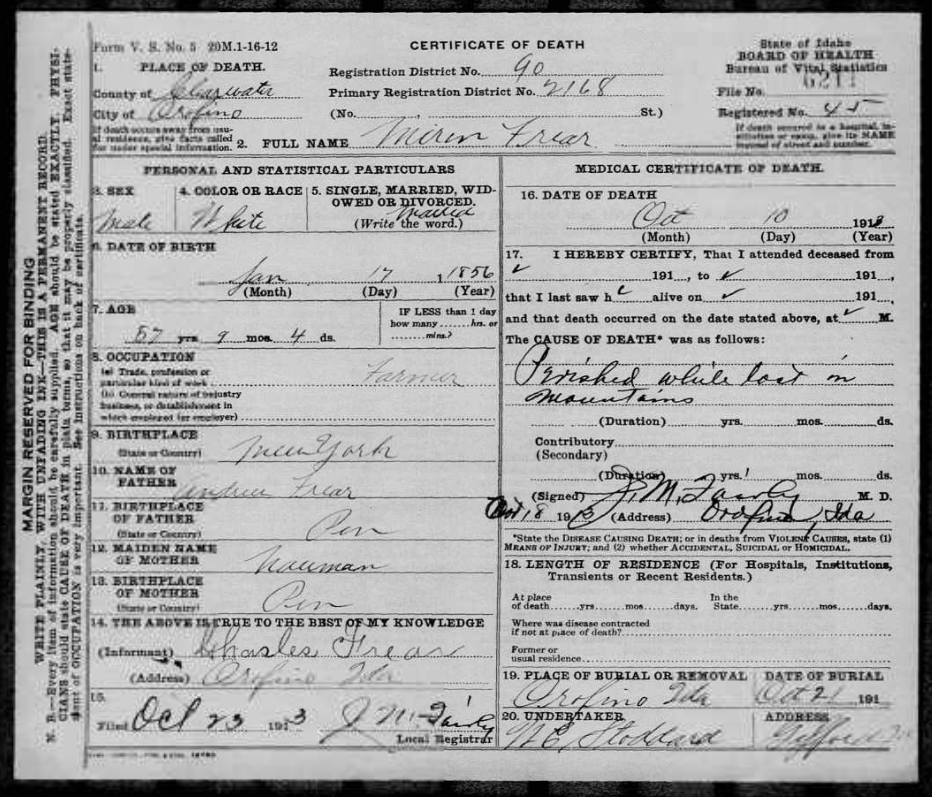 Form V. S. No. 5 20M.1-16-12
CERTIFICATE OF DEATH
State of Idaho
BOARD OF HEALTH
Bureau of Vital Statistics
File No.
Registered No. 45
If death occurred in a hospital, institution or camp, give its NAME instead of street and number.
1. PLACE OF DEATH.
County of Clearwater
City of Orofino
If death occurs away from usual residence, give facts called for under special information.
Registration District No. 90
Primary Registration District No. 2168
(No. St.)
2. FULL NAME Frear
MARGIN RESERVED FOR BINDING
WRITE PLAINLY, WITH UNFADING INK—THIS IS A PERMANENT RECORD.
N. B.—Every item of information should be carefully supplied. AGE should be stated EXACTLY. PHYSICIANS should state CAUSE OF DEATH in plain terms, so that it may be properly classified. Exact statement of OCCUPATION is very important. See instructions on back of certificate.
PERSONAL AND STATISTICAL PARTICULARS
3. SEX
Male
4. COLOR OR RACE
White
5. SINGLE, MARRIED, WIDOWED OR DIVORCED.
(Write the word.)
6. DATE OF BIRTH
Jan 17 1856
(Month) (Day) (Year)
7. AGE
57 yrs 9 mos. 4 ds.
IF LESS than 1 day
how many ....... hrs. or
....... mins.?
8. OCCUPATION
(a) Trade, profession or
particular kind of work
Farmer
(b) General nature of industry
business, or establishment in
which employed (or employer)
9. BIRTHPLACE
(State or Country)
New York
10. NAME OF
FATHER
Andrew Frear
11. BIRTHPLACE
OF FATHER
(State or Country)
Pen
12. MAIDEN NAME
OF MOTHER
13. BIRTHPLACE
OF MOTHER
(State or Country)
Pen
14. THE ABOVE IS TRUE TO THE BEST OF MY KNOWLEDGE
(Informant) Charles Frear
(Address) Orofino Ida
15.
Filed Oct 23 1913 J M Fairly
Local Registrar
MEDICAL CERTIFICATE OF DEATH.
16. DATE OF DEATH
Oct 10 1913
(Month) (Day) (Year)
17. I HEREBY CERTIFY, That I attended deceased from
191 , to 191 ,
that I last saw h alive on 191 ,
and that death occurred on the date stated above, at M.
The CAUSE OF DEATH* was as follows:
Perished while lost in
mountains
(Duration) yrs. mos. ds.
Contributory
(Secondary)
(Duration) yrs. mos. ds.
(Signed) J. M. Fairly M. D.
18 1913 (Address) Orofino, Ida
*State the DISEASE CAUSING DEATH; or in deaths from VIOLENT CAUSES, state (1)
MEANS OF INJURY; and (2) whether ACCIDENTAL, SUICIDAL OR HOMICIDAL.
18. LENGTH OF RESIDENCE (For Hospitals, Institutions,
Transients or Recent Residents.)
At place
of death......yrs......mos......days.
In the
State......yrs......mos......days.
Where was disease contracted
if not at place of death?
Former or
usual residence
19. PLACE OF BURIAL OR REMOVAL
Orofino Ida
DATE OF BURIAL
Oct 21 191
20. UNDERTAKER
Stoddard
ADDRESS